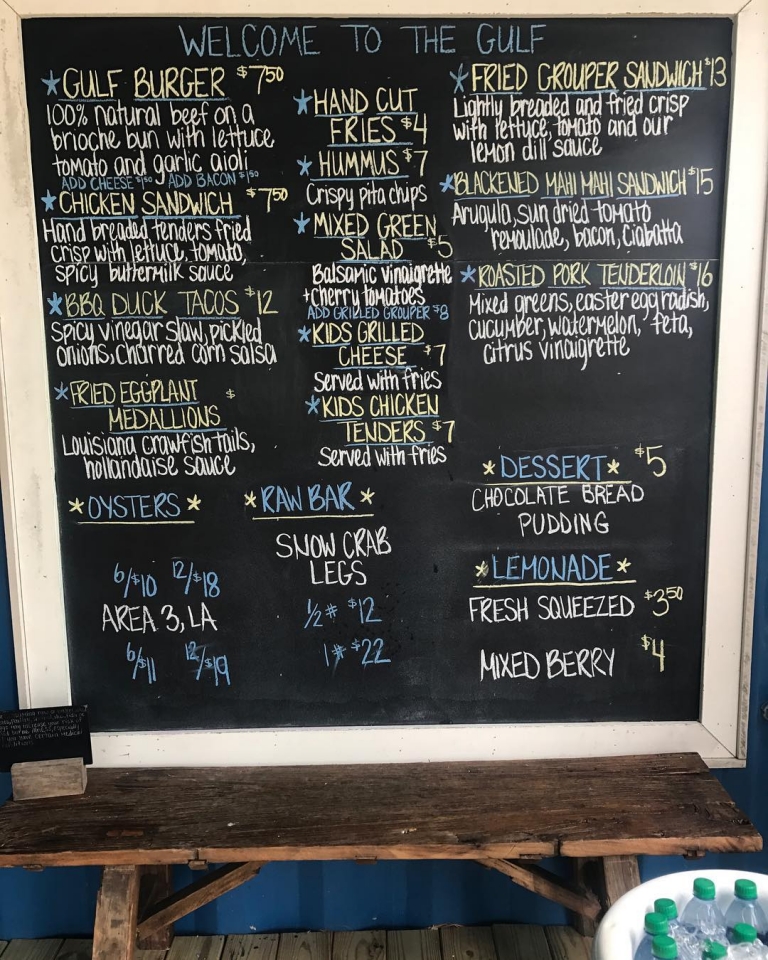 WELCOME TO THE GULF
*GULF BURGER $7.50
100% natural beef on a
brioche bun with lettuce
tomato and garlic aioli
ADD CHEESE $1.50 ADD BACON $1.50
*CHICKEN SANDWICH $7.50
Hand breaded tenders fried
crisp with lettuce, tomato,
spicy buttermilk sauce
*BBQ DUCK TACOS $12
Spicy vinegar slaw, pickled
onions, charred corn salsa
*FRIED EGGPLANT $
MEDALLIONS
Louisiana crawfish tails,
hollandaise sauce
*HAND CUT
FRIES $4
*HUMMUS $7
Crispy pita chips
*MIXED GREEN
SALAD $5
Balsamic vinaigrette
+cherry tomatoes
ADD GRILLED GROUPER $8
*KIDS GRILLED
CHEESE $7
Served with fries
*KIDS CHICKEN
TENDERS $7
Served with fries
*FRIED GROUPER SANDWICH $13
Lightly breaded and fried crisp
with lettuce, tomato and our
lemon dill sauce
*BLACKENED MAHI MAHI SANDWICH $15
Arugula, sun dried tomato
remoulade, bacon, Ciabatta
*ROASTED PORK TENDERLOIN $16
Mixed greens, easter egg radish,
cucumber, watermelon, feta,
citrus vinaigrette
*OYSTERS*
6/$10 12/$18
AREA 3, LA
6/$11 12/$19
*RAW BAR*
SNOW CRAB
LEGS
1/2# $12
1# $22
*DESSERT* $5
CHOCOLATE BREAD
PUDDING
*LEMONADE*
FRESH SQUEEZED $3.50
MIXED BERRY $4